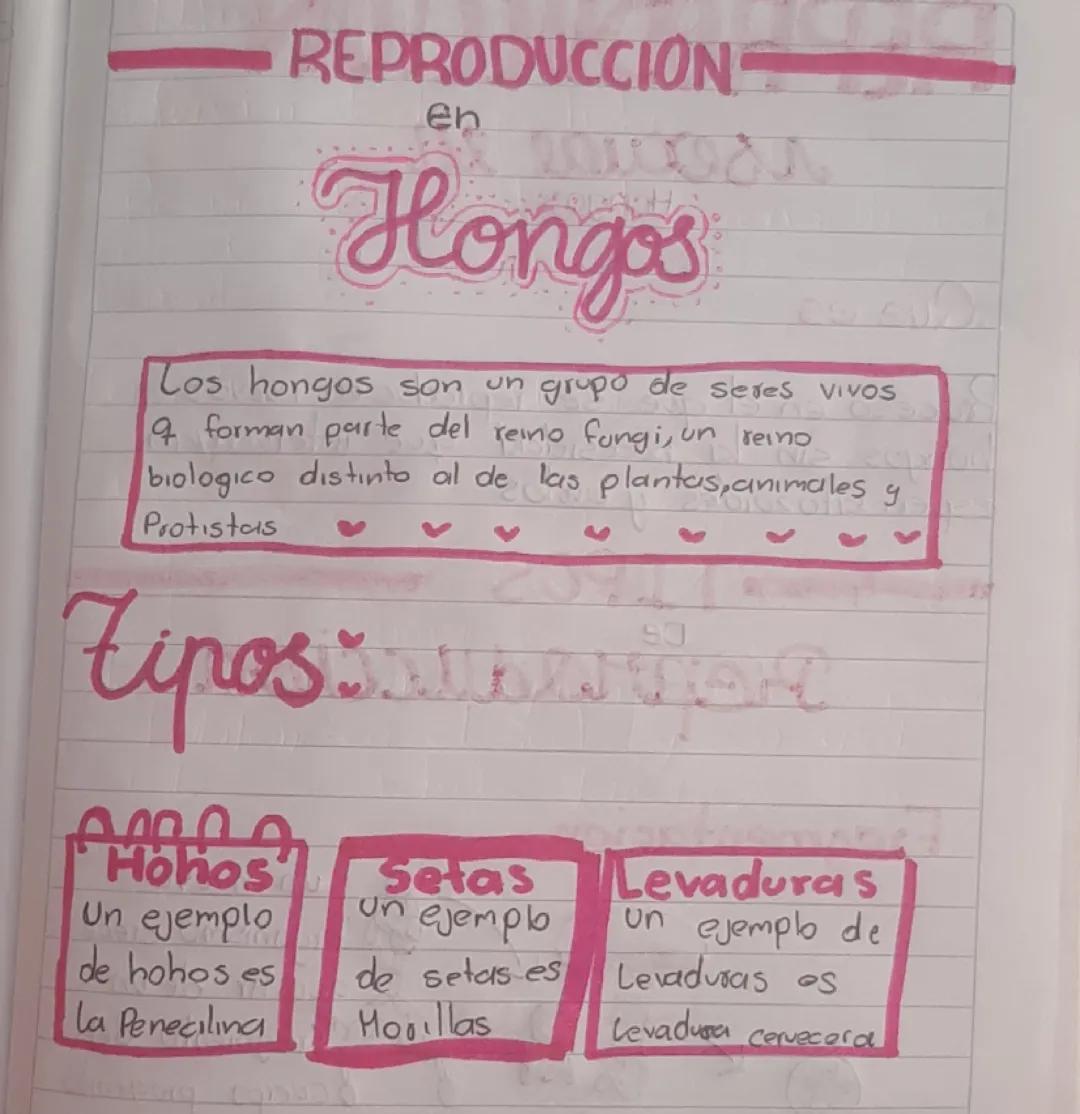 REPRODUCCION
en
Hongos
Los hongos son un grupo de seres vivos
q forman parte del reino fungi, un reino
biologico distinto al de las plantas, animales y
Protistas
Tipos:
Hohos
Un ejemplo
de hohos es
la Penecilina
Setas
Un ejemplo
de setas es
Morillas
Levaduras
Un ejemplo de
Levaduras es
levadura cervecera